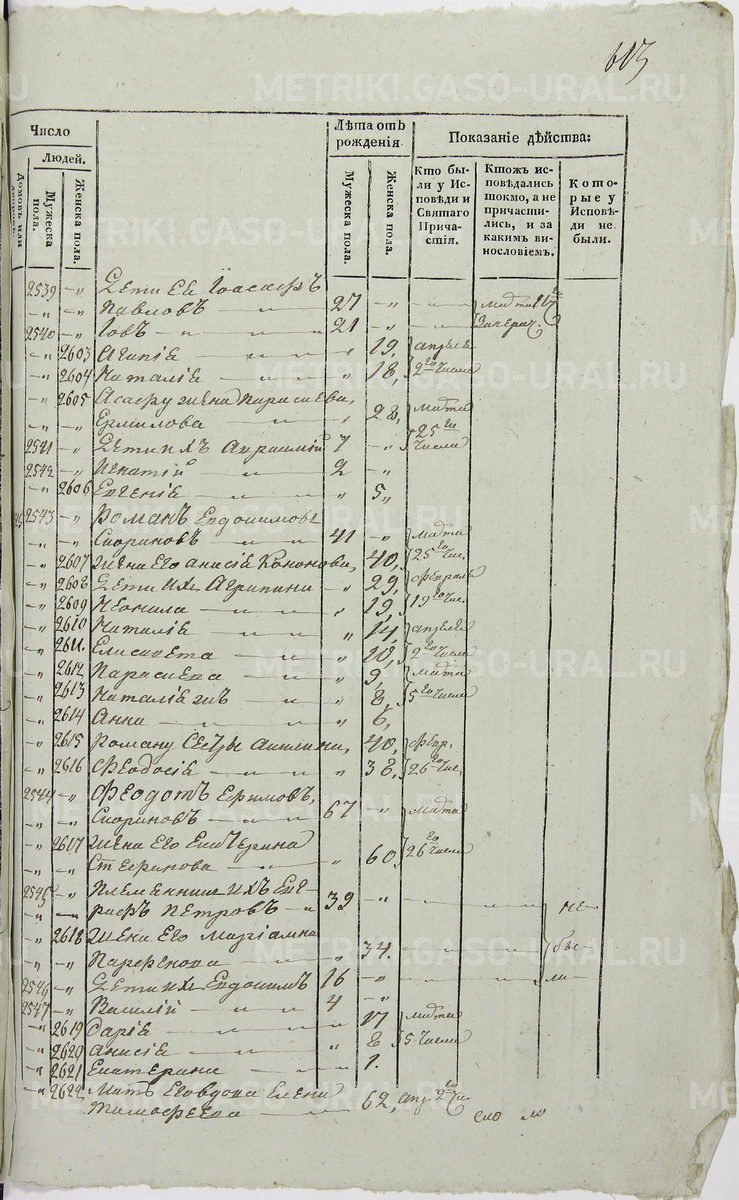 603
Число
Людей.
Домовъ или
Мужеска пола.
Женска пола.
Лѣта отъ рожденія
Мужеска пола.
Женска пола.
Показаніе дѣйства:
Кто бы-
ли у Ис-
повѣди и
Святаго
Прича-
стія.
Ктожъ ис-
повѣдались
токмо, а не
причасти-
лись, и за
какимъ ви-
нословіемъ.
Кото-
рые у
Исповѣ-
ди не
были.
2539 Дети Ея Іоасафъ
Павловъ 27 марта
2540 Іовъ 21
2603 Агапія 19, апреля
2604 Наталія 18, 2го числа
2605 Асафу жена Параскева,
Ермилова 28, марта
2541 Дети ихъ 7 25 числа
2542 Игнатій 2
2606 Евгенія 5
2543 Романъ Евдокимовъ
Скориновъ 41 марта
2607 жена Его Анисія Кононова, 40, 25го чис.
2608 Дети ихъ Агрипина 29, февраля
2609 Неонила 19, 19го чис.
2610 Наталія 14, апреля
2611 Елисавета 10, 2го числа
2612 Параскева 9, марта
2613 Наталія 8, 5го числа
2614 Анна 6,
2615 Роману Сестры 40, февр.
2616 Феодосія 38, 26го чис.
2544 Феодотъ Ефимовъ,
Скориновъ 67 марта
2617 жена Его Екатерина
Стефанова 60 26го числа
2545 Племянникъ ихъ Евг-
рафъ Петровъ 39 не
2618 жена Его Маріамна бы-
Парфенова 34. ли
2546 Дети ихъ Евдокимъ 16
2547 Василій 4
2619 Дарія 17 марта
2620 Анисія 8 5 числа
2621 Екатерина 1.
2622 Мать Его вдова Елена
Тимофеева 62, апр. 2го чи.